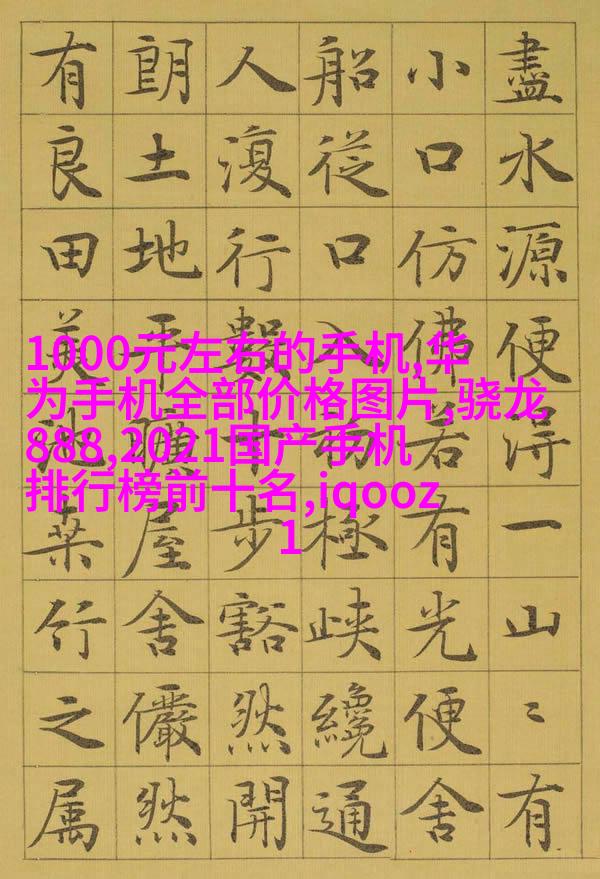 盡水源便得一山〻有
小口仿佛若有光便舍
船從口入初極峽纔通
人復行數十步豁然開
朗土地平曠屋舍儼然
有良田美池桑竹之属
1000元左右的手机,华
为手机全部价格图片,骁龙
888,2021国产手机
排行榜前十名,iqooz
1